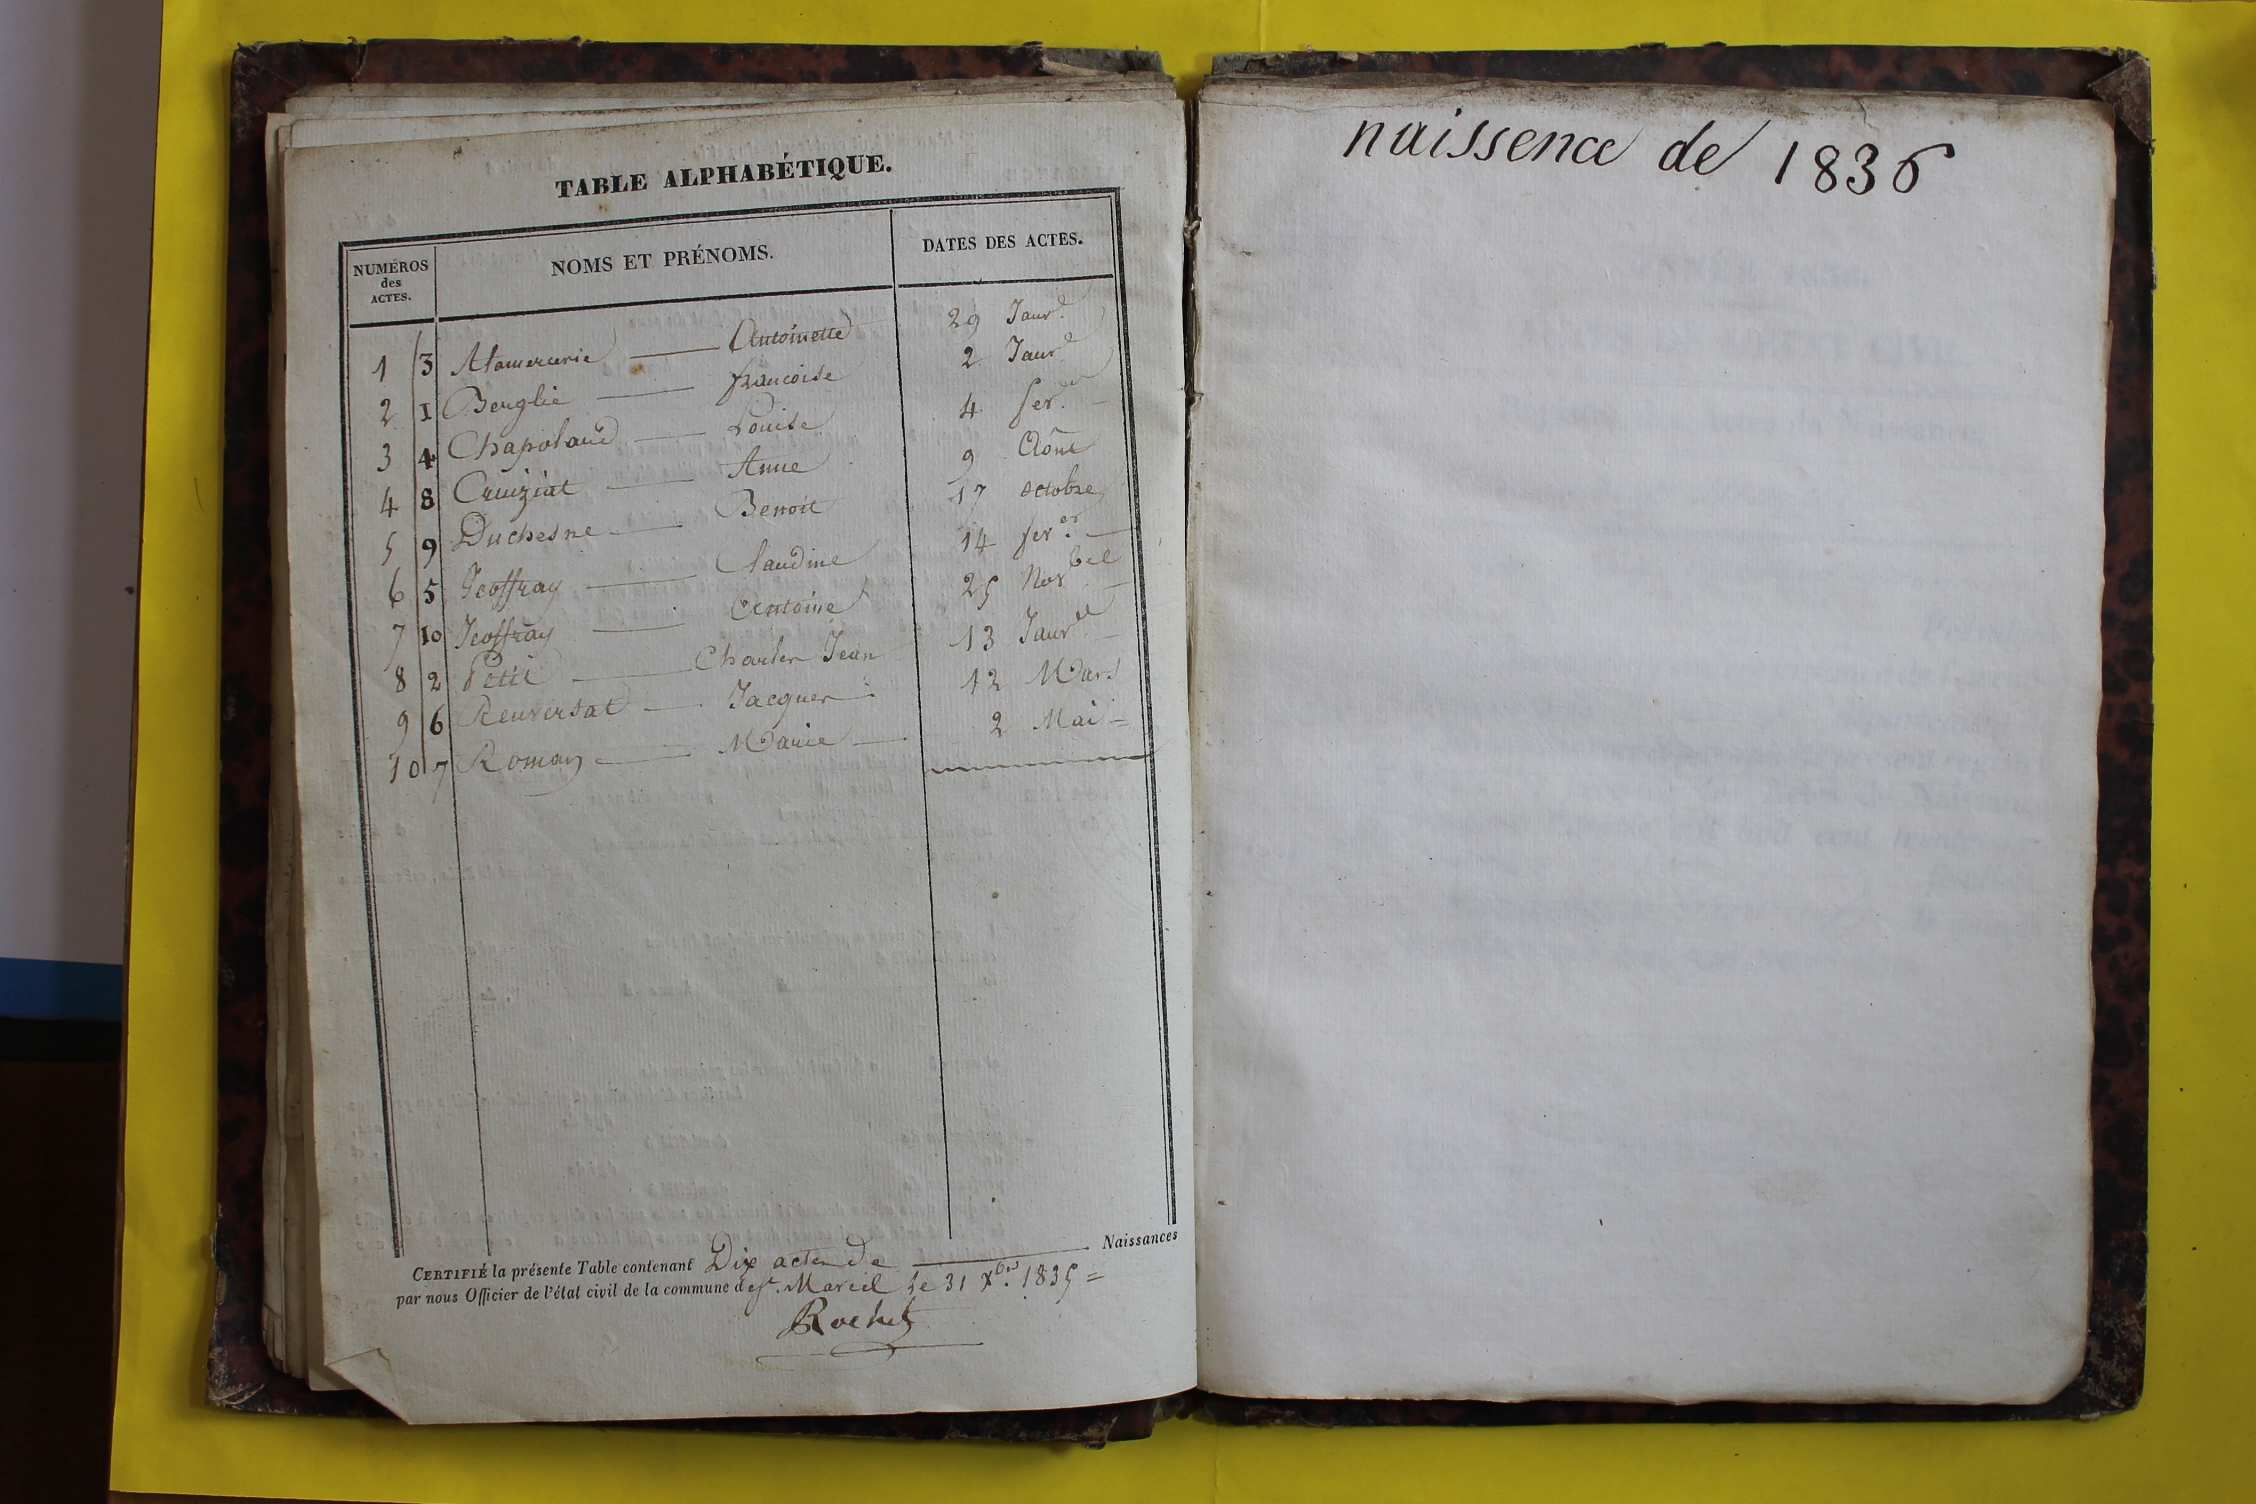 TABLE ALPHABÉTIQUE.
NUMÉROS des ACTES. NOMS ET PRÉNOMS. DATES DES ACTES.
1 3 Antoinette 29 Janv.
2 1 Berglié francoise 2 Janv.
3 4 Louise 4 fev.er
4 8 Cruiziat Anne 9 Aôut
5 9 Duchesne Benoit 17 octobre
6 5 Jeoffray Claudine 14 fev.er
7 10 Jeoffray Antoine 25 Nov
8 2 Petit Charles Jean 13 Janv.
9 6 Renversat Jacques 12 Mars
10 7 Romay Marie 2 Mai
CERTIFIÉ la présente Table contenant Dix actes de Naissances
par nous Officier de l'état civil de la commune de St. Marcel le 31 Xbre. 1835
Rochet
naissence de 1836